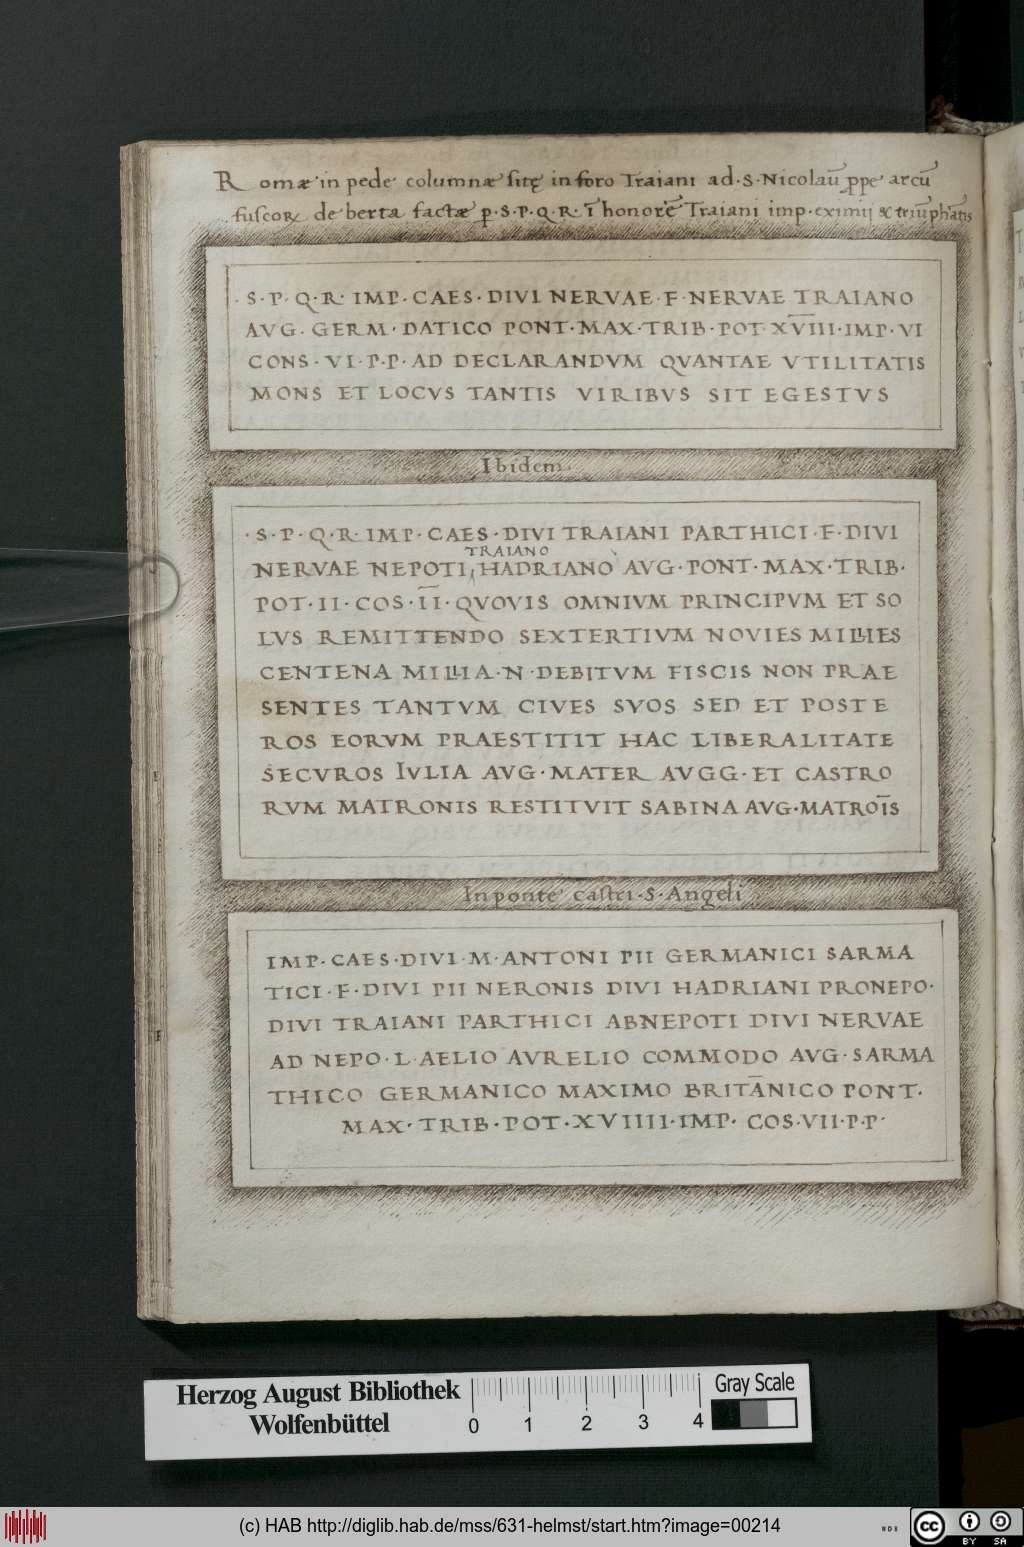 Romæ in pede columnæ sitę in foro Traiani ad · S · Nicolaū ꝓpe arcū
fuscoꝝ de berta factæ ꝑ · S · P · Q · R · ī honorē Traiani imp · eximii & triūphātis
· S · P · Q · R · IMP · CAES · DIVI NERVAE · F · NERVAE TRAIANO
AVG · GERM · DATICO PONT · MAX · TRIB · POT · XV̅III · IMP · VI
CONS · VI · P · P · AD DECLARANDVM QVANTAE VTILITATIS
MONS ET LOCVS TANTIS VIRIBVS SIT EGESTVS
Ibidem ·
· S · P · Q · R · IMP · CAES · DIVI TRAIANI PARTHICI · F · DIVI
TRAIANO
NERVAE NEPOTI HADRIANO AVG · PONT · MAX · TRIB ·
POT · II · COS · I̅I̅ · QVOVIS OMNIVM PRINCIPVM ET SO
LVS REMITTENDO SEXTERTIVM NOVIES MILLIES
CENTENA MILLIA · N · DEBITVM FISCIS NON PRAE
SENTES TANTVM CIVES SVOS SED ET POSTE
ROS EORVM PRAESTITIT HAC LIBERALITATE
SECVROS IVLIA AVG · MATER AVGG · ET CASTRO
RVM MATRONIS RESTITVIT SABINA AVG · MATROĪS
In ponte castri · S · Angeli
IMP · CAES · DIVI · M · ANTONI PII GERMANICI SARMA
TICI · F · DIVI PII NERONIS DIVI HADRIANI PRONEPO ·
DIVI TRAIANI PARTHICI ABNEPOTI DIVI NERVAE
AD NEPO · L · AELIO AVRELIO COMMODO AVG · SARMA
THICO GERMANICO MAXIMO BRITĀNICO PONT ·
MAX · TRIB · POT · XVIIII · IMP · COS · VII · P · P ·
Herzog August Bibliothek
Wolfenbüttel
0 1 2 3 4
Gray Scale
(c) HAB http://diglib.hab.de/mss/631-helmst/start.htm?image=00214
WDB
cc BY SA